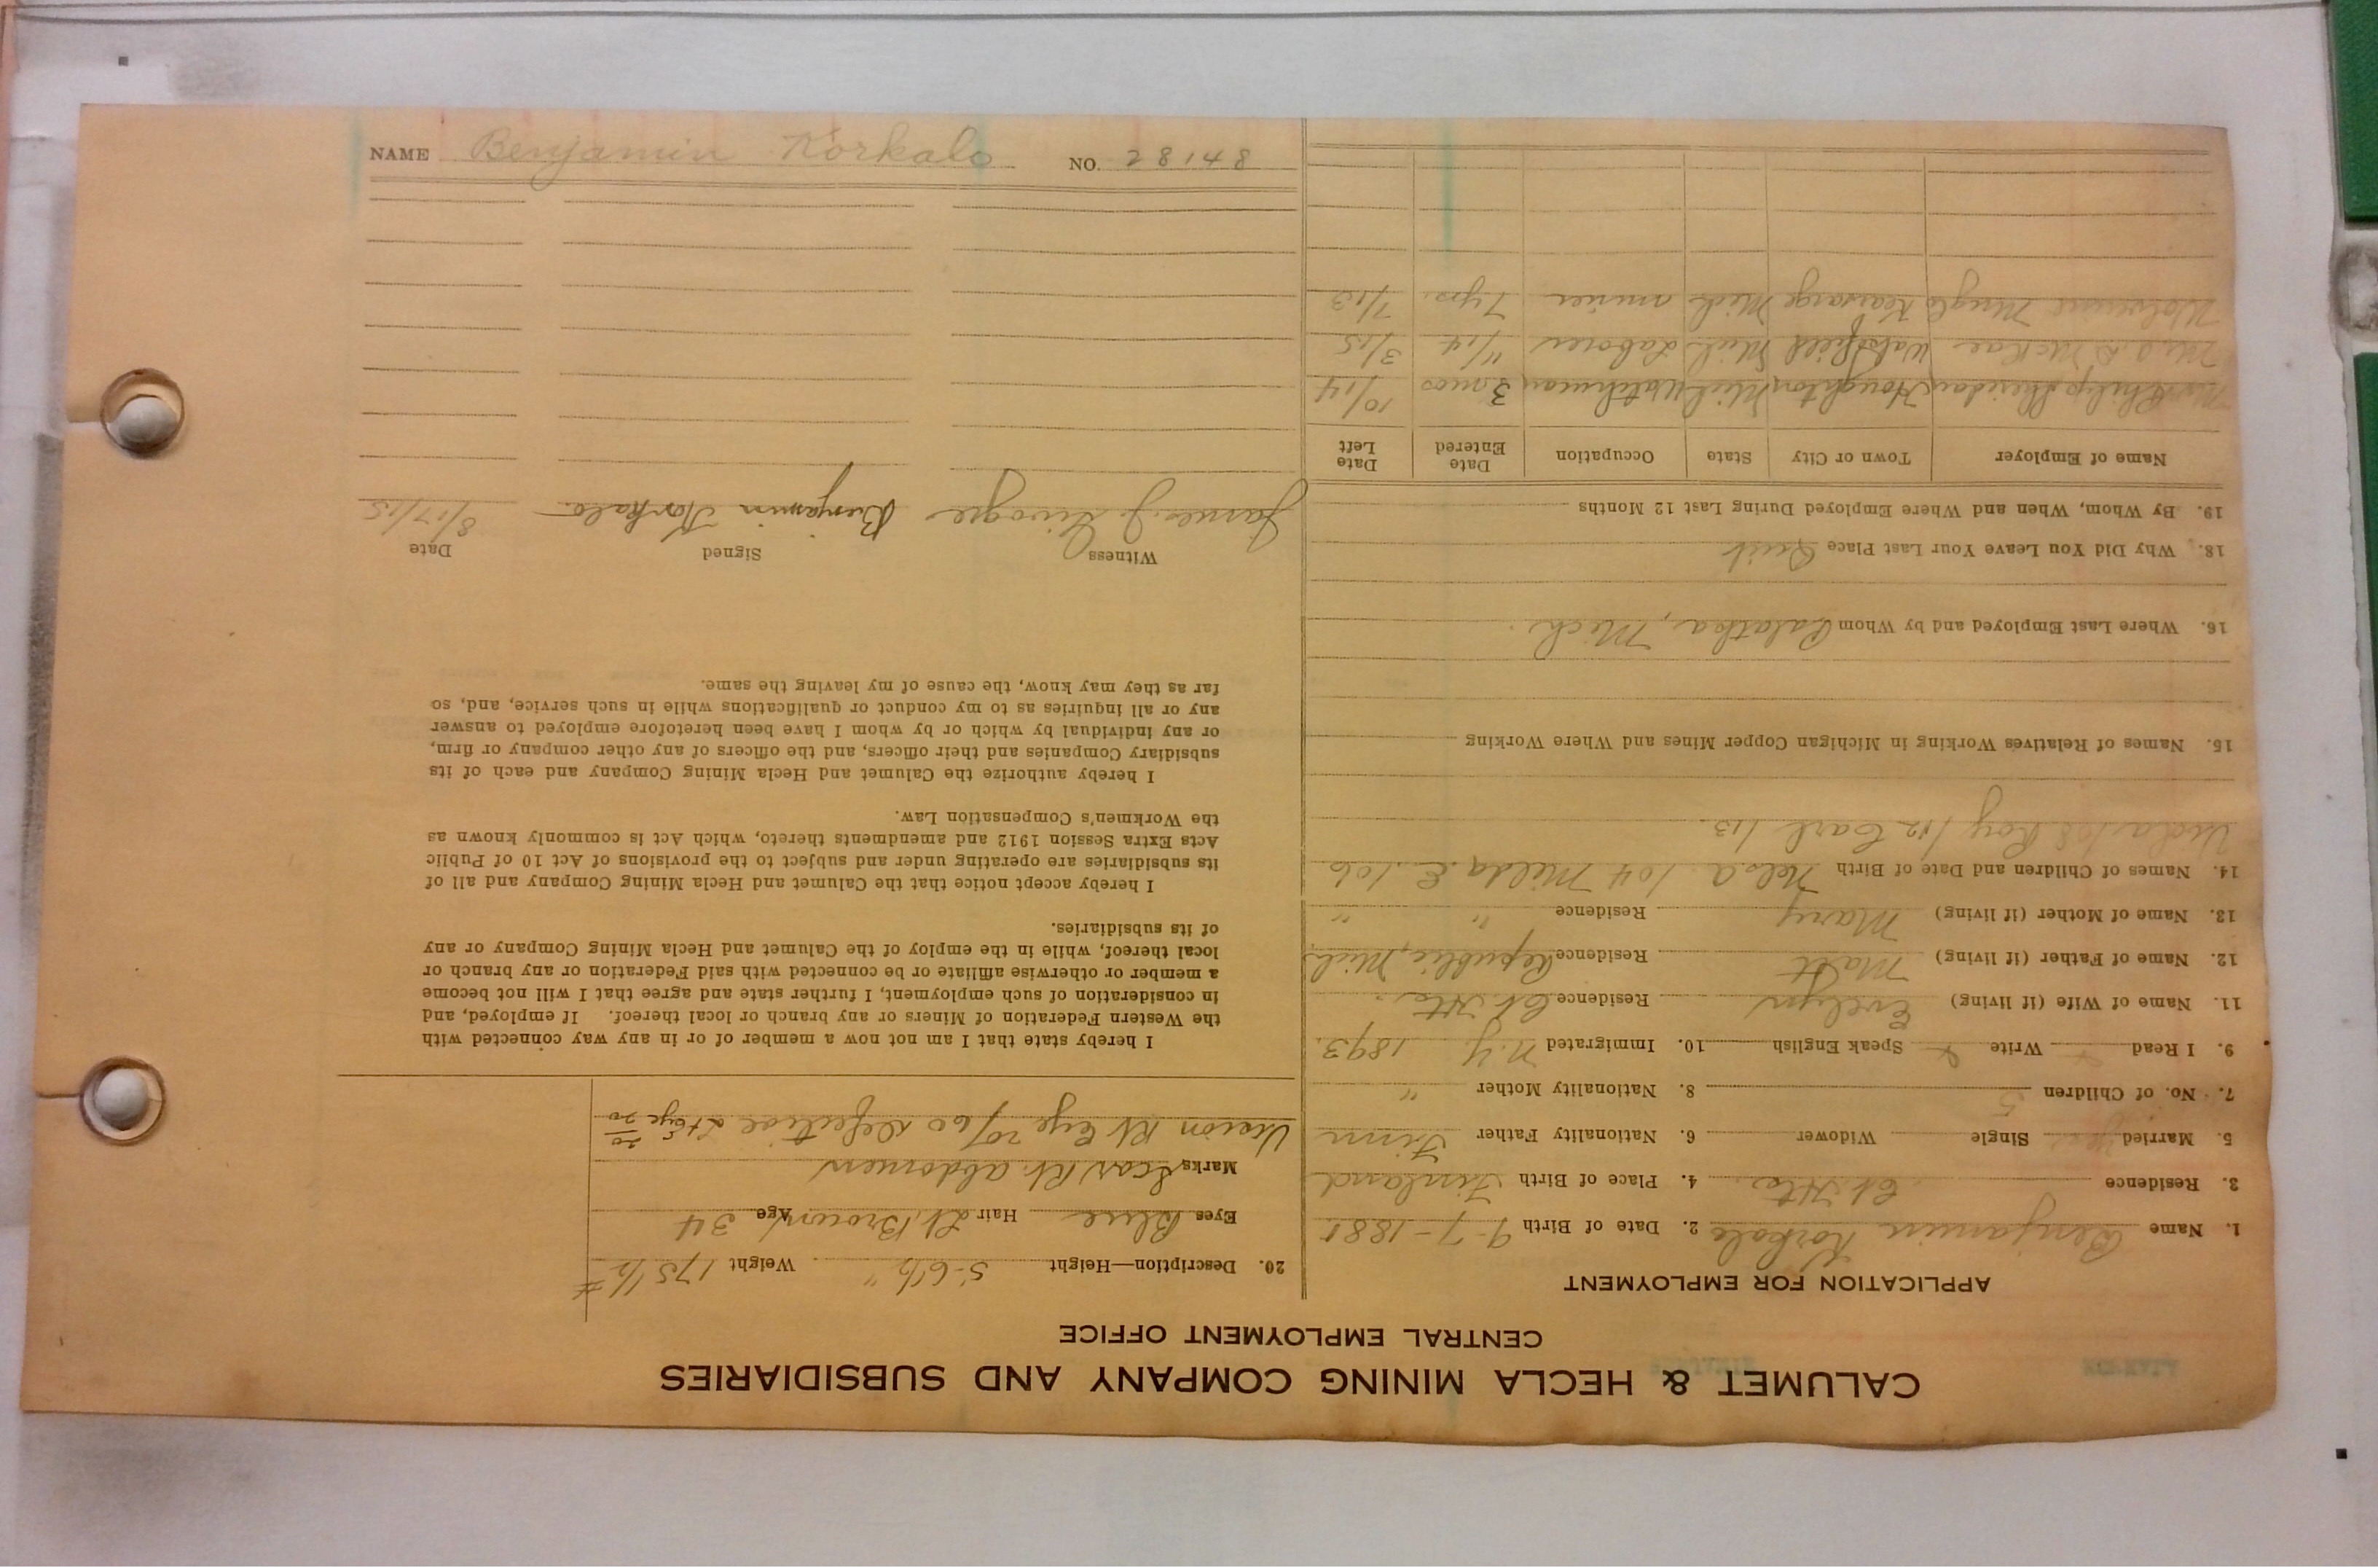 CALUMET & HECLA MINING COMPANY AND SUBSIDIARIES
CENTRAL EMPLOYMENT OFFICE
APPLICATION FOR EMPLOYMENT
1. Name Benjamin Korkalo 2. Date of Birth 9-7-1881
3. Residence 4. Place of Birth Finland
5. Married yes Single Widower 6. Nationality Father Finn
7. No. of Children 5 8. Nationality Mother "
9. I Read Write Speak English 10. Immigrated N.Y 1893
11. Name of Wife (if living) Evelyn Residence
12. Name of Father (if living) Matt Residence Republic, Mich
13. Name of Mother (if living) Mary Residence " "
14. Names of Children and Date of Birth
Roy 1/12 Carl 1/13
15. Names of Relatives Working in Michigan Copper Mines and Where Working
16. Where Last Employed and by Whom Palatka, Mich.
18. Why Did You Leave Your Last Place Quit
19. By Whom, When and Where Employed During Last 12 Months
Name of Employer Town or City State Occupation Date Entered Date Left
Philip Sheridan Houghton Mich Watchman 3 mos 10/14
McRae Mich Laborer 11/14 3/15
Wolverine Kearsarge Mich 7 yrs. 7/13
20. Description—Height 5-6½" Weight 175½ #
Eyes Blue Hair Lt. Brown Age 34
Marks Scar Rt. abdomen
Vision Rt Eye 20/60 defective Lt eye
I hereby state that I am not now a member of or in any way connected with
the Western Federation of Miners or any branch or local thereof. If employed, and
in consideration of such employment, I further state and agree that I will not become
a member or otherwise affiliate or be connected with said Federation or any branch or
local thereof, while in the employ of the Calumet and Hecla Mining Company or any
of its subsidiaries.
I hereby accept notice that the Calumet and Hecla Mining Company and all of
its subsidiaries are operating under and subject to the provisions of Act 10 of Public
Acts Extra Session 1912 and amendments thereto, which Act is commonly known as
the Workmen's Compensation Law.
I hereby authorize the Calumet and Hecla Mining Company and each of its
subsidiary Companies and their officers, and the officers of any other company or firm,
or any individual by which or by whom I have been heretofore employed to answer
any or all inquiries as to my conduct or qualifications while in such service, and, so
far as they may know, the cause of my leaving the same.
Witness Signed Date
James J. Benjamin Korkalo 8/17/15
NAME Benjamin Korkalo NO. 28148